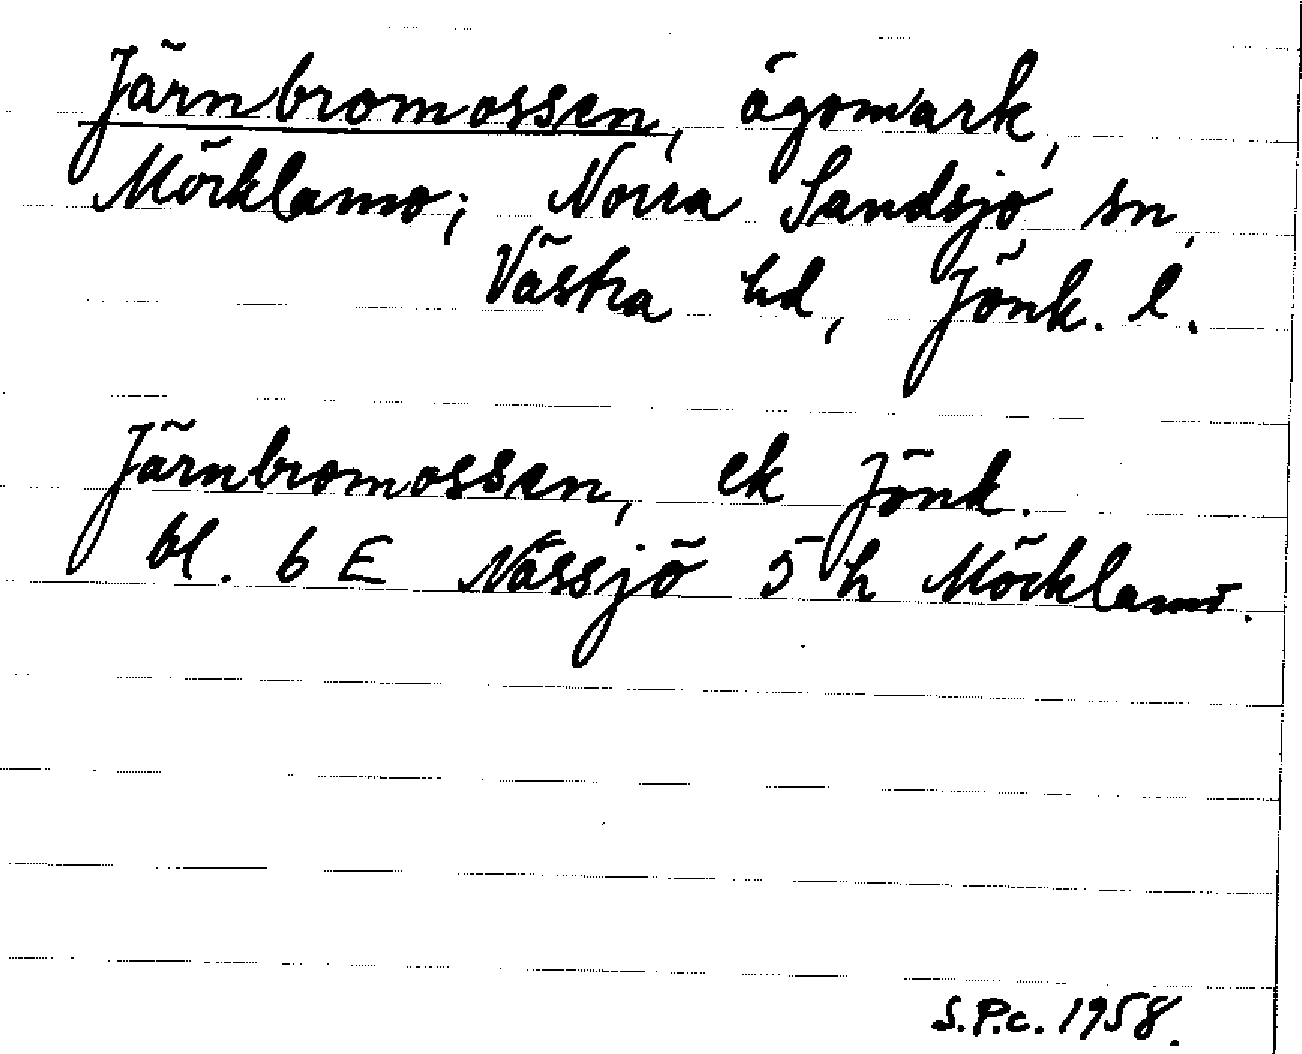 Järnbromossen, ägomark,
Möcklamo; Norra Sandsjö sn,
Västra hd, Jönk. l.
Järnbromossen, ek Jönk.
bl. 6 E Nässjö 5 h Möcklamo.
S.P.c. 1958.